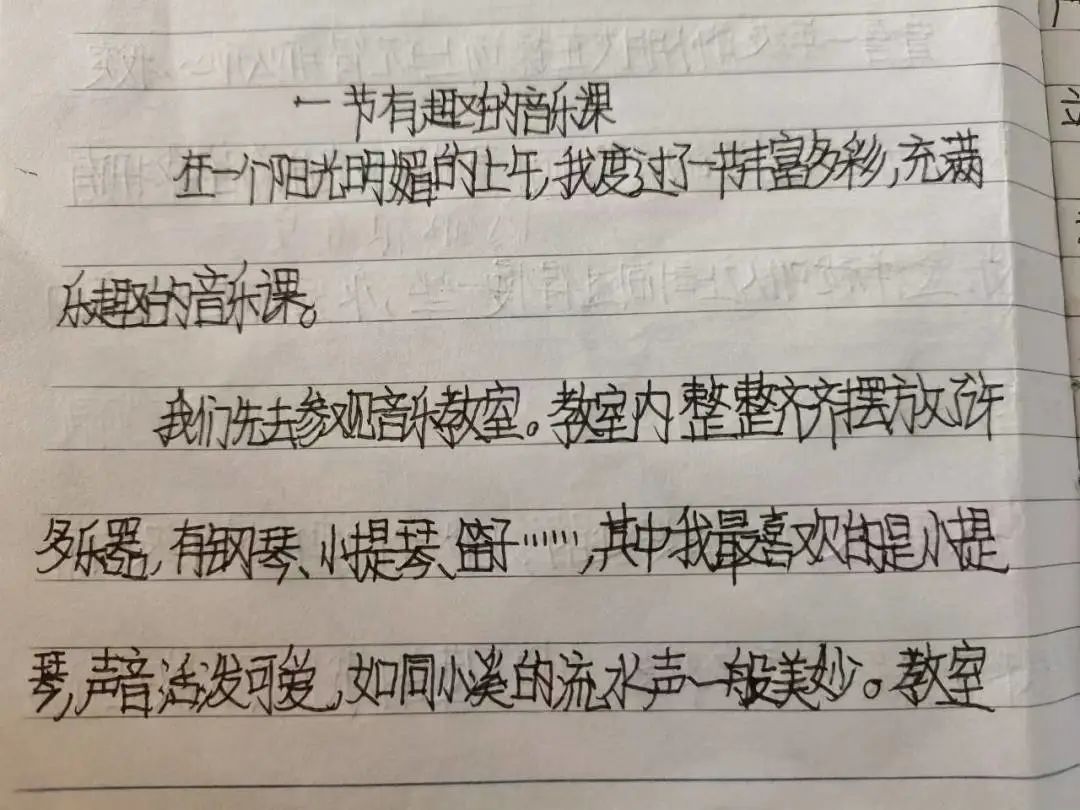 一节有趣的音乐课
在一个阳光明媚的上午,我度过了一节丰富多彩,充满
乐趣的音乐课。
我们先去参观音乐教室。教室内整整齐齐摆放了许
多乐器,有钢琴、小提琴、笛子……,其中我最喜欢的是小提
琴,声音活泼可爱,如同小溪的流水声一般美妙。教室